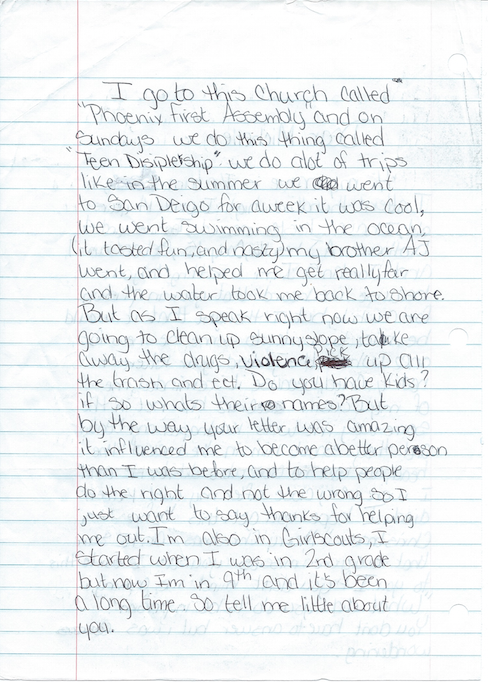 I go to this Church called
"Phoenix First Assembly" and on
Sundays we do this thing called
"Teen Disipletship" we do alot of trips
like in the summer we went
to San Deigo for a week it was cool,
we went swimming in the ocean,
(it tasted fun, and nasty) my brother AJ
went, and helped me get really far
and the water took me back to shore.
But as I speak right now we are
going to clean up sunnyslope, take
away the drugs, violence, pick up all
the trash and ect. Do you have kids?
if so whats their names? But
by the way your letter was amazing
it influenced me to become a better person
than I was before, and to help people
do the right and not the wrong so I
just want to say thanks for helping
me out. I'm also in Girlscouts, I
started when I was in 2nd grade
but now Im in 9th and it's been
a long time. So tell me little about
you.